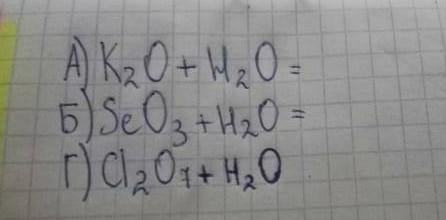 А) K₂O + H₂O =
Б) SeO₃ + H₂O =
Г) Cl₂O₇ + H₂O